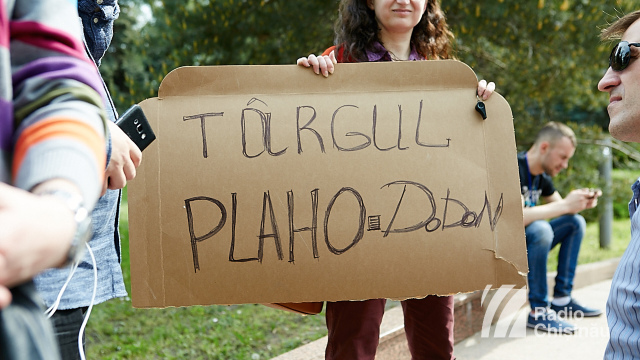 TâRGUL
PLAHO=DoDoN
Radio
Chisinau